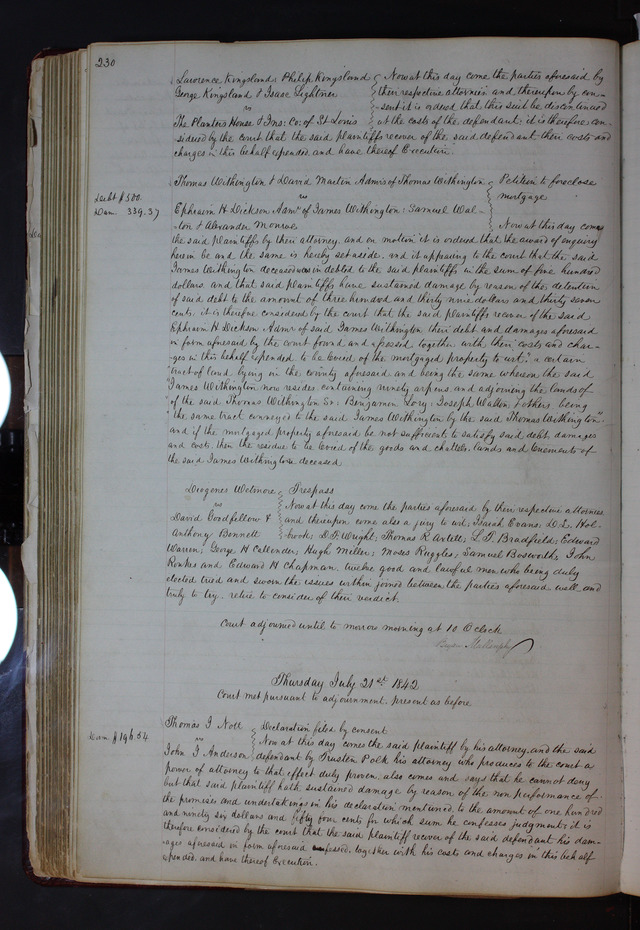 230
Lawrence Kingsland, Philip Kingsland
George Kingsland & Isaac Lightner
vs
The Planters House & Ins: Co: of St Louis
Now at this day come the parties aforesaid by
their respective attornies and thereupon by con-
sent it is ordered that this suit be discontinued
at the costs of the defendant; it is therefore con-
sidered by the court that the said plaintiffs recover of the said defendant their costs and
charges in this behalf expended and have thereof Execution.
Debt $500.
Dam. 339.37
Thomas Withington & David Martin Admrs of Thomas Withington
vs
Ephraim H Dickson Admr of James Withington: Samuel Wal-
ton & Alexander Monroe
Petition to foreclose
mortgage
Now at this day comes
the said plaintiffs by their attorney, and on motion it is ordered that the award of enquiry
herein be and the same is hereby set aside, and it appearing to the court that the said
James Withington deceased was indebted to the said plaintiffs in the sum of five hundred
dollars, and that said plaintiffs have sustained damage by reason of the detention
of said debt to the amount of three hundred and thirty nine dollars and thirty seven
cents, it is therefore considered by the court that the said plaintiffs recover of the said
Ephraim H Dickson Admr of said James Withington their debt and damages aforesaid
in form aforesaid by the court found and assessed together with their costs and char-
-ges in this behalf expended to be levied of the mortgaged property to wit: "a certain
"tract of land lying in the county aforesaid and being the same whereon the said
"James Withington now resides containing ninety arpens and adjoining the lands of
of the said Thomas Withington Sr: Benjamin Lory: Joseph Walton & others being
"the same tract conveyed to the said James Withington by the said Thomas Withington".
and if the mortgaged property aforesaid be not sufficient to satisfy said debt, damages
and costs, then the residue to be levied of the goods and chattels, lands and tenements of
the said James Withington deceased
Diogenes Wetmore
vs
David Goodfellow &
Anthony Bennett
Trespass
Now at this day come the parties aforesaid by their respective attornies
and thereupon come also a jury to wit, Isaiah Evans; D. L. Hol-
brook; D. F. Wright; Thomas R. L. D. Bradfield; Edward
Warren; George H Callender; Hugh Miller; Moses Ruggles; Samuel Bosworth; John
and Edward H Chapman. twelve good and lawful men who being duly
elected tried and sworn the issues within joined between the parties aforesaid well and
truly to try. retire to consider of their verdict.
Court adjourned until to morrow morning at 10 O'clock
Bryan Mullanphy
Thursday July 21st 1842
Court met pursuant to adjournment. present as before
Dam $196.54.
Thomas J Nott
vs
John J Anderson
Declaration filed by consent
Now at this day comes the said plaintiff by his attorney, and the said
defendant by Trusten Polk his attorney who produces to the court a
power of attorney to that effect duly proven, also comes and says that he cannot deny
but that said plaintiff hath sustained damage by reason of the non performance of
the promises and undertakings in his declaration mentioned to the amount of one hundred
and ninety six dollars and fifty four cents for which sum he confesses judgment; it is
therefore considered by the court that the said plaintiff recover of the said defendant his dam-
ages aforesaid in form aforesaid confessed, together with his costs and charges in this behalf
expended. and have thereof Execution.